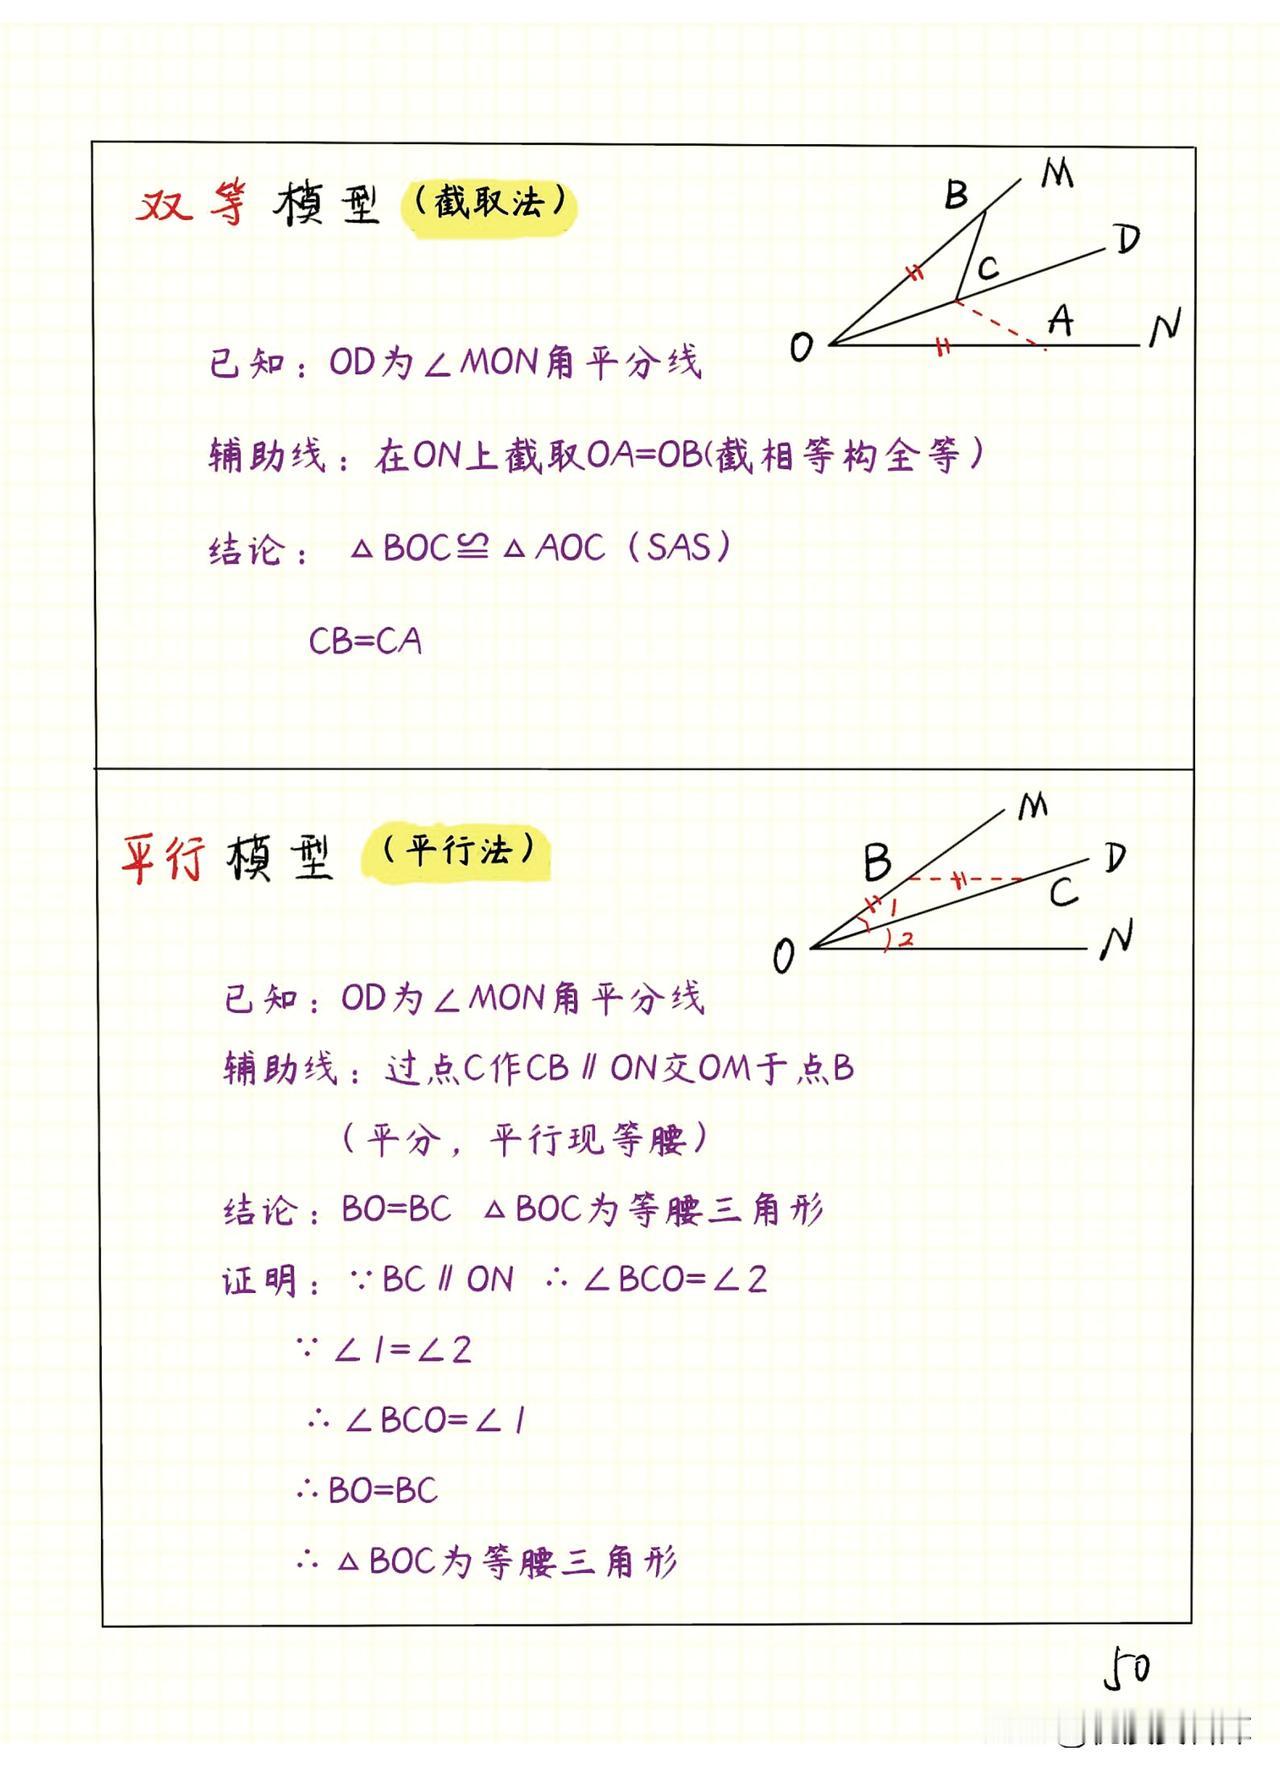 双等模型（截取法）
M
B
D
C
A
O
N
已知：OD为∠MON角平分线
辅助线：在ON上截取OA=OB(截相等构全等）
结论：△BOC≌△AOC（SAS）
CB=CA
平行模型（平行法）
M
B
D
C
1
2
O
N
已知：OD为∠MON角平分线
辅助线：过点C作CB∥ON交OM于点B
（平分，平行现等腰）
结论：BO=BC △BOC为等腰三角形
证明：∵BC∥ON ∴∠BCO=∠2
∵∠1=∠2
∴∠BCO=∠1
∴BO=BC
∴△BOC为等腰三角形
50